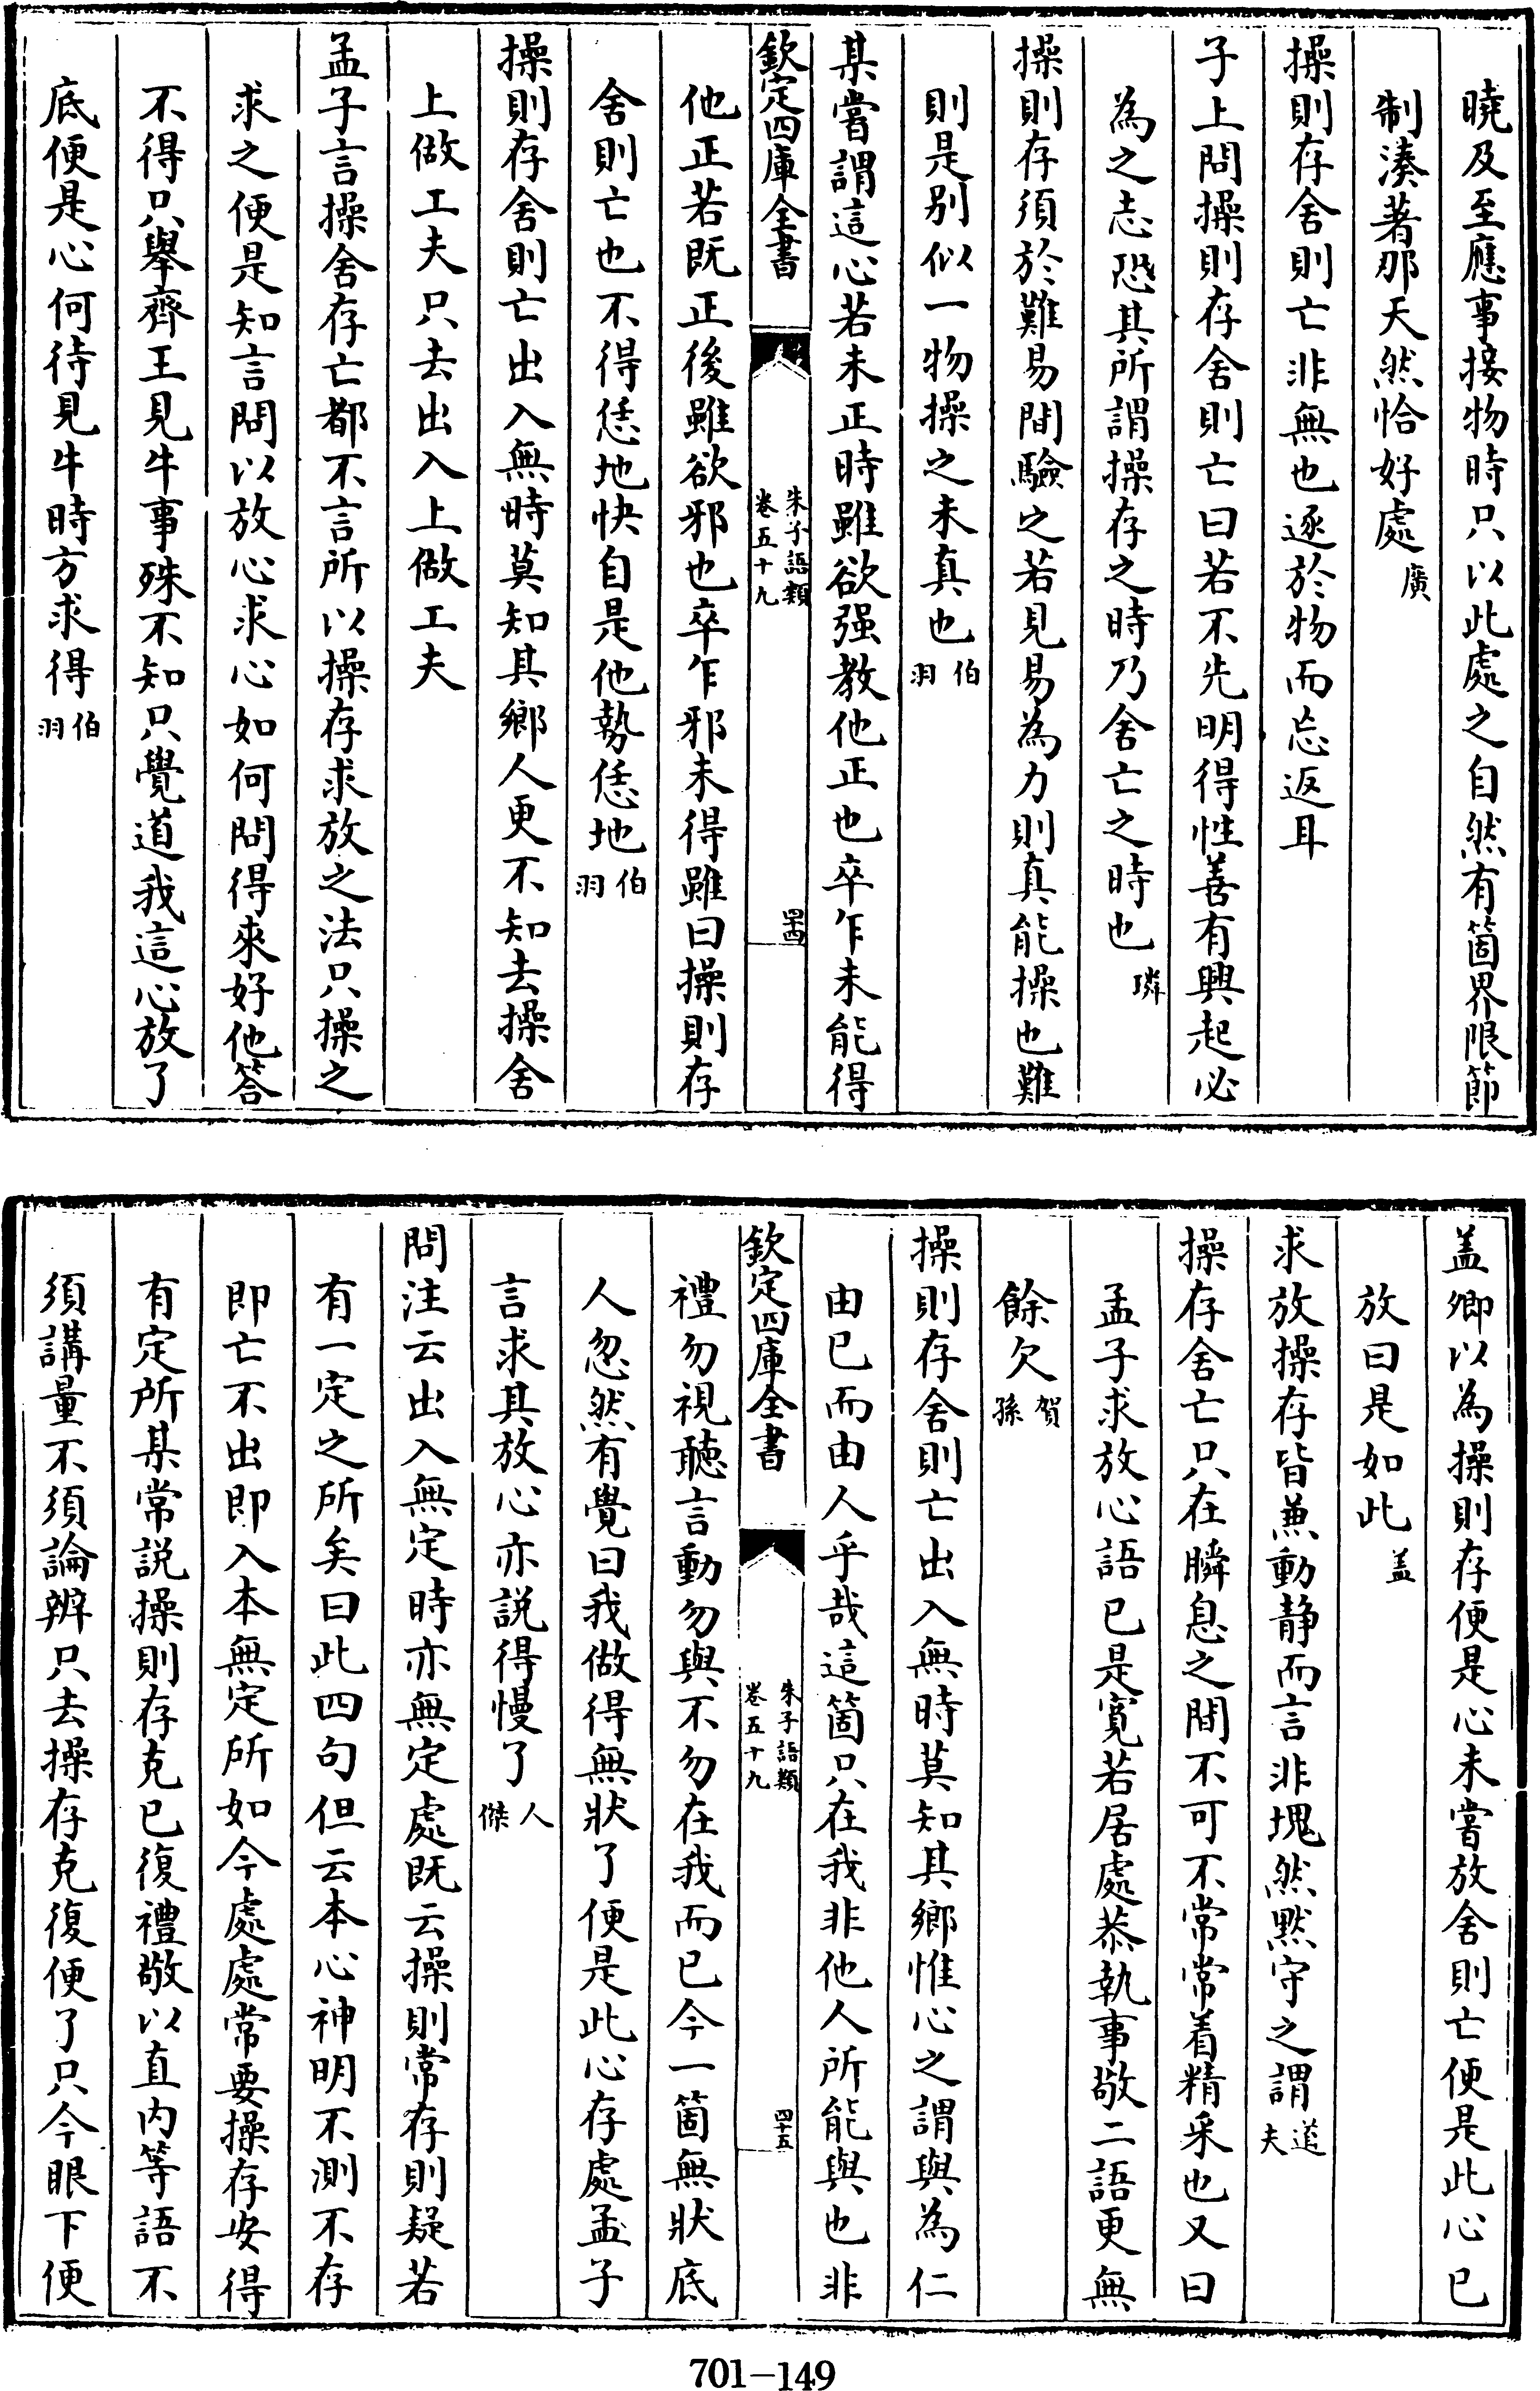 曉及至應事接物時只以此處之自然有箇界限節
制湊著那天然恰好處廣
操則存舍則亡非無也逐於物而忘返耳
子上問操則存舍則亡曰若不先明得性善有興起必
為之志恐其所謂操存之時乃舍亡之時也璘
操則存須於難易間驗之若見易為力則真能操也難
則是别似一物操之未真也伯羽
某嘗謂這心若未正時雖欲强教他正也卒乍未能得
欽定四庫全書
朱子語類
卷五十九
四十四
他正若既正後雖欲邪也卒乍邪未得雖曰操則存
舍則亡也不得恁地快自是他勢恁地伯羽
操則存舍則亡出入無時莫知其鄉人更不知去操舍
上做工夫只去出入上做工夫
孟子言操舍存亡都不言所以操存求放之法只操之
求之便是知言問以放心求心如何問得來好他答
不得只舉齊王見牛事殊不知只覺道我這心放了
底便是心何待見牛時方求得伯羽
盖卿以為操則存便是心未嘗放舍則亡便是此心已
放曰是如此盖
求放操存皆兼動静而言非塊然黙守之謂道夫
操存舍亡只在瞬息之間不可不常常着精采也又曰
孟子求放心語已是寛若居處恭執事敬二語更無
餘欠賀孫
操則存舍則亡出入無時莫知其鄉惟心之謂與為仁
由已而由人乎哉這箇只在我非他人所能與也非
欽定四庫全書
朱子語類
卷五十九
四十五
禮勿視聽言動勿與不勿在我而已今一箇無狀底
人忽然有覺曰我做得無狀了便是此心存處孟子
言求其放心亦説得慢了人傑
問注云出入無定時亦無定處既云操則常存則疑若
有一定之所矣曰此四句但云本心神明不測不存
即亡不出即入本無定所如今處處常要操存安得
有定所某常説操則存克已復禮敬以直内等語不
須講量不須論辨只去操存克復便了只今眼下便
701-149